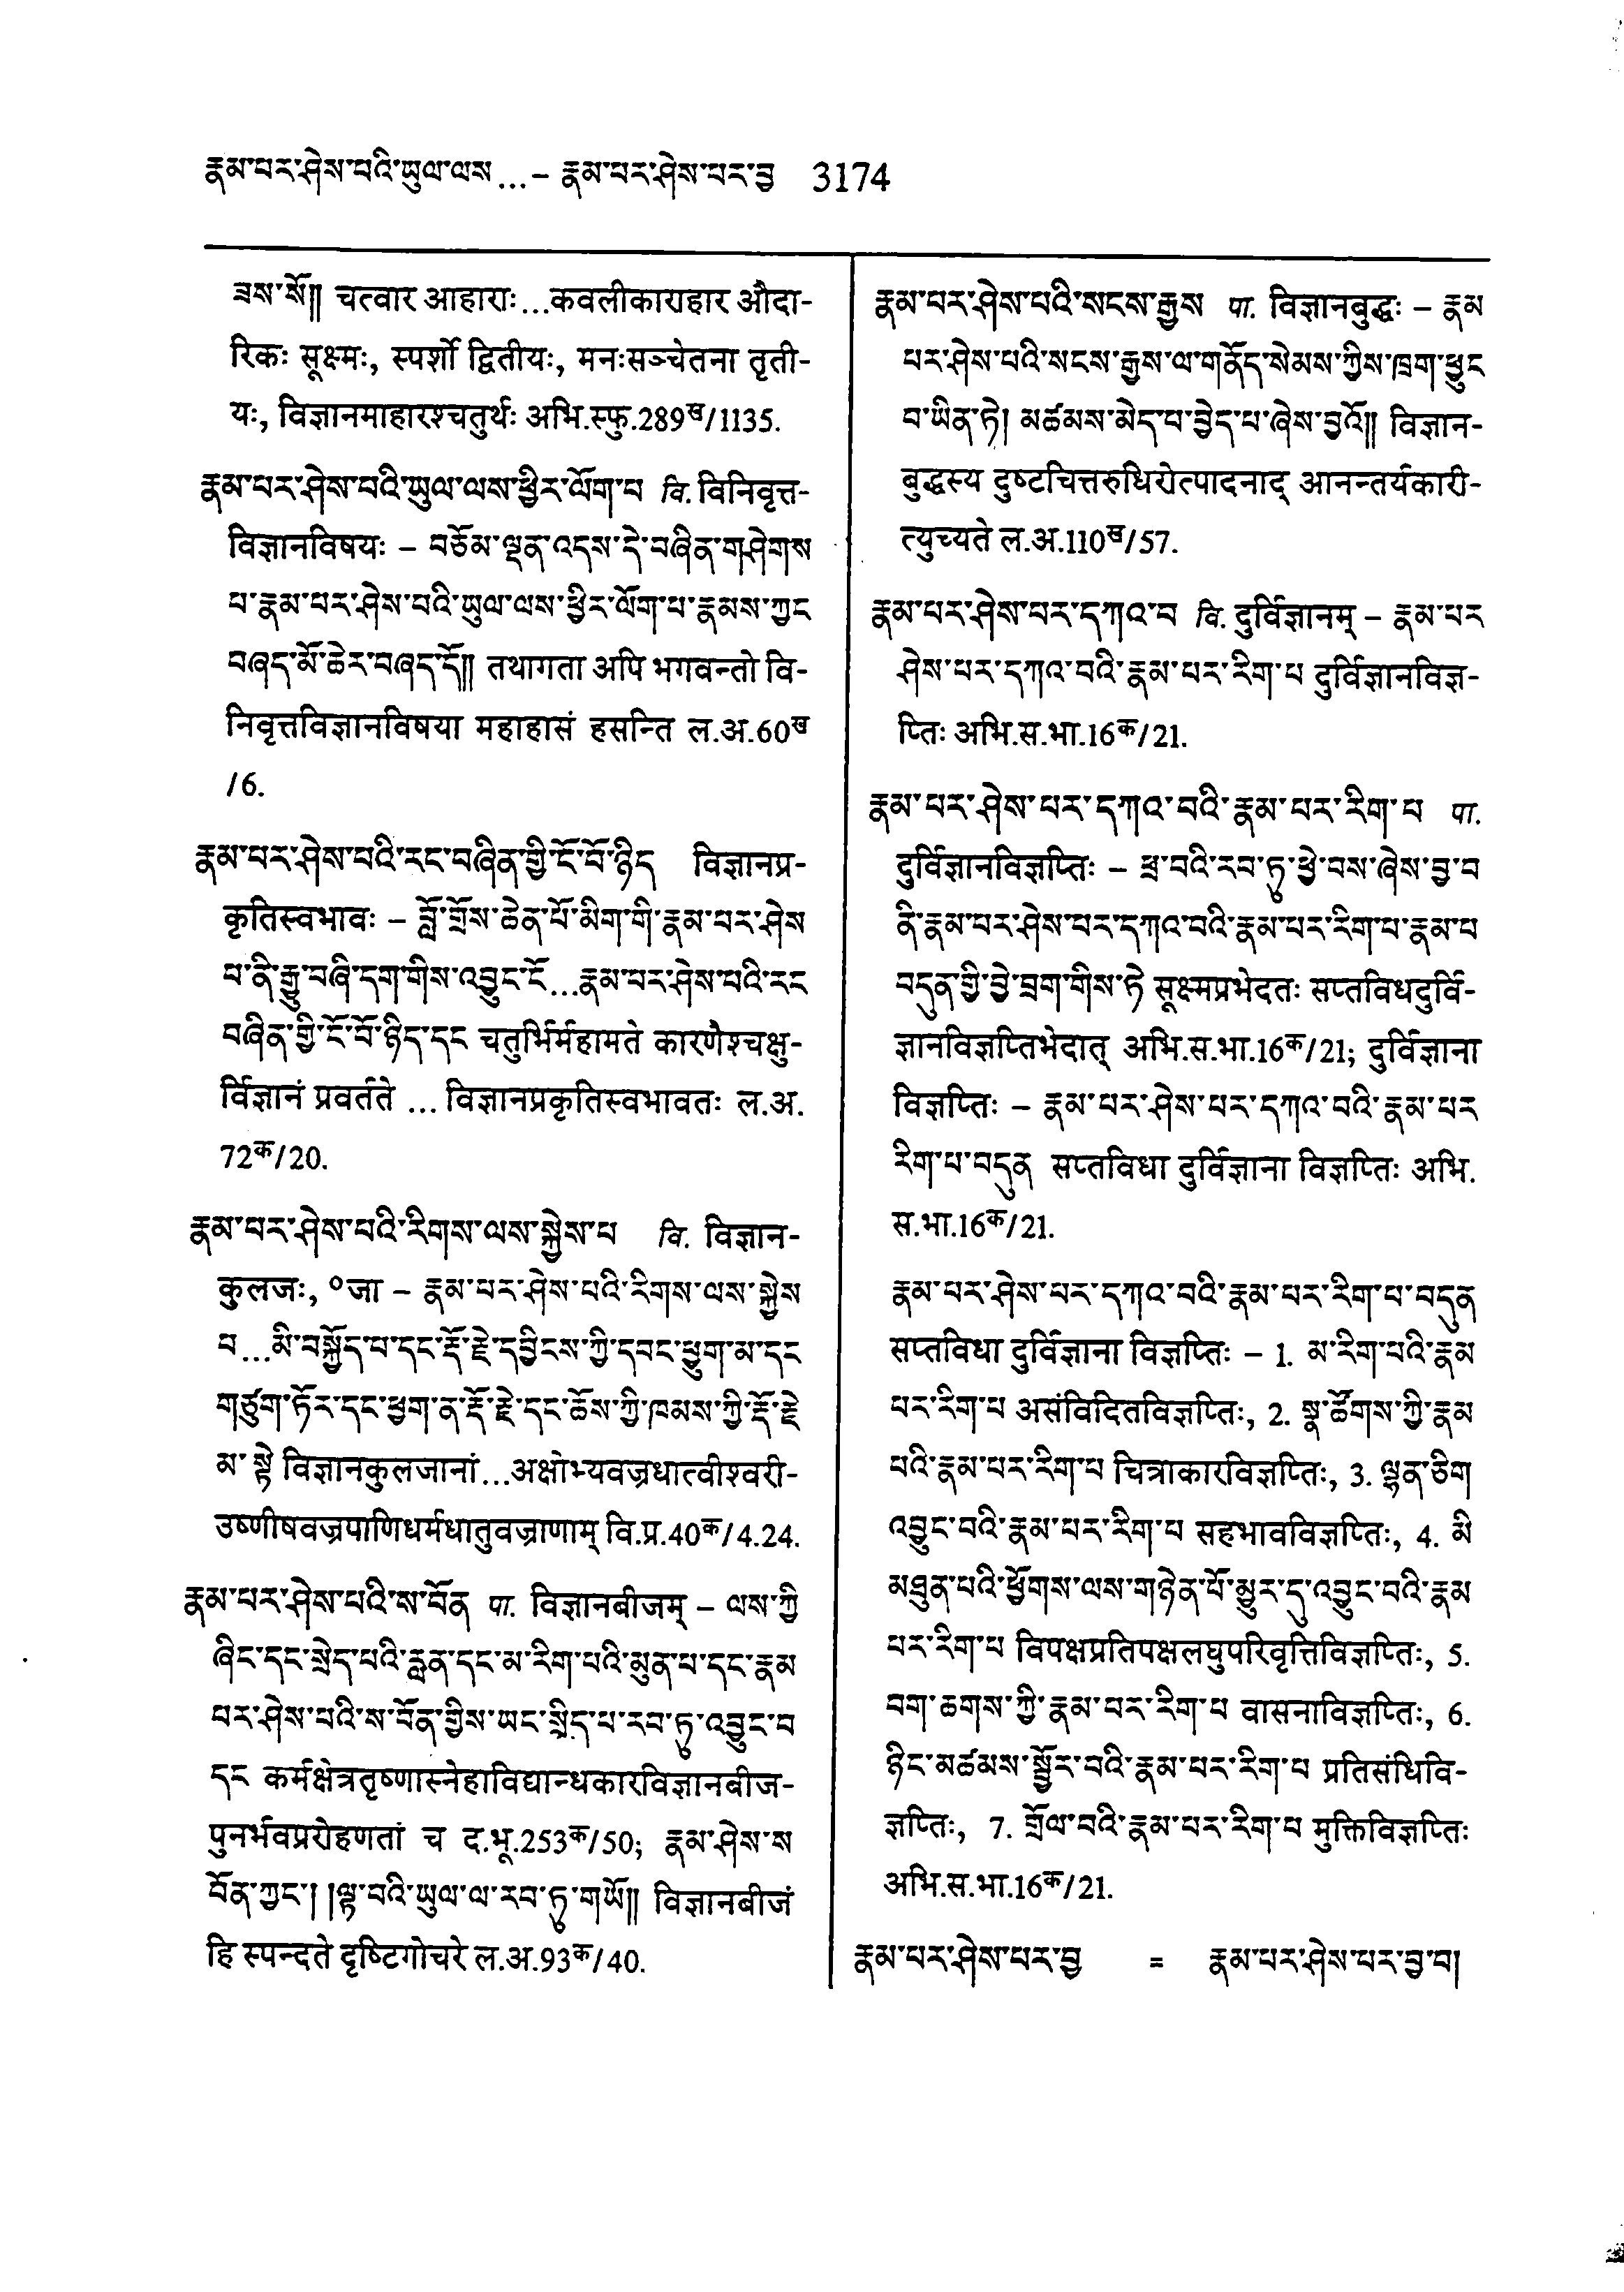 རྣམ་པར་ཤེས་པའི་ཡུལ་ལས...– རྣམ་པར་ཤེས་པར་བྱ 3174
ཟས་སོ༎ चत्वार आहाराः...कवलीकाराहार औदा-
रिकः सूक्ष्मः, स्पर्शो द्वितीयः, मनःसञ्चेतना तृती-
यः, विज्ञानमाहारश्चतुर्थः अभि.स्फु.289ख/1135.
རྣམ་པར་ཤེས་པའི་ཡུལ་ལས་ཕྱིར་ལོག་པ वि. विनिवृत्त-
विज्ञानविषयः – བཅོམ་ལྡན་འདས་དེ་བཞིན་གཤེགས
པ་རྣམ་པར་ཤེས་པའི་ཡུལ་ལས་ཕྱིར་ལོག་པ་རྣམས་ཀྱང
བཞད་མོ་ཆེར་བཞད་དོ༎ तथागता अपि भगवन्तो वि-
निवृत्तविज्ञानविषया महाहासं हसन्ति ल.अ.60ख
/6.
རྣམ་པར་ཤེས་པའི་རང་བཞིན་གྱི་ངོ་བོ་ཉིད विज्ञानप्र-
कृतिस्वभावः – བློ་གྲོས་ཆེན་པོ་མིག་གི་རྣམ་པར་ཤེས
པ་ནི་རྒྱུ་བཞི་དག་གིས་འབྱུང་ངོ...རྣམ་པར་ཤེས་པའི་རང
བཞིན་གྱི་ངོ་བོ་ཉིད་དང चतुर्भिर्महामते कारणैश्चक्षु-
र्विज्ञानं प्रवर्तते ... विज्ञानप्रकृतिस्वभावतः ल.अ.
72क/20.
རྣམ་པར་ཤེས་པའི་རིགས་ལས་སྐྱེས་པ वि. विज्ञान-
कुलजः, ०जा – རྣམ་པར་ཤེས་པའི་རིགས་ལས་སྐྱེས
པ...མི་བསྐྱོད་པ་དང་རྡོ་རྗེ་དབྱིངས་ཀྱི་དབང་ཕྱུག་མ་དང
གཙུག་ཏོར་དང་ཕྱག་ན་རྡོ་རྗེ་དང་ཆོས་ཀྱི་ཁམས་ཀྱི་རྡོ་རྗེ
མ་སྟེ विज्ञानकुलजानां...अक्षोभ्यवज्रधात्वीश्वरी-
उष्णीषवज्रपाणिधर्मधातुवज्राणाम् वि.प्र.40क/4.24.
རྣམ་པར་ཤེས་པའི་ས་བོན पा. विज्ञानबीजम् – ལས་ཀྱི
ཞིང་དང་སྲེད་པའི་རླན་དང་མ་རིག་པའི་མུན་པ་དང་རྣམ
པར་ཤེས་པའི་ས་བོན་གྱིས་ཡང་སྲིད་པ་རབ་ཏུ་འབྱུང་བ
དང कर्मक्षेत्रतृष्णास्नेहाविद्यान्धकारविज्ञानबीज-
पुनर्भवप्ररोहणतां च द.भू.253क/50; རྣམ་ཤེས་ས
བོན་ཀྱང་། །ལྟ་བའི་ཡུལ་ལ་རབ་ཏུ་གཡོ༎ विज्ञानबीजं
हि स्पन्दते दृष्टिगोचरे ल.अ.93क/40.
རྣམ་པར་ཤེས་པའི་སངས་རྒྱས पा. विज्ञानबुद्धः – རྣམ
པར་ཤེས་པའི་སངས་རྒྱས་ལ་གནོད་སེམས་ཀྱིས་ཁྲག་ཕྱུང
བ་ཡིན་ཏེ། མཚམས་མེད་པ་བྱེད་པ་ཞེས་བྱའོ༎ विज्ञान-
बुद्धस्य दुष्टचित्तरुधिरोत्पादनाद् आनन्तर्यकारी-
त्युच्यते ल.अ.110ख/57.
རྣམ་པར་ཤེས་པར་དཀའ་བ वि. दुर्विज्ञानम् – རྣམ་པར
ཤེས་པར་དཀའ་བའི་རྣམ་པར་རིག་པ दुर्विज्ञानविज्ञ-
प्तिः अभि.स.भा.16क/21.
རྣམ་པར་ཤེས་པར་དཀའ་བའི་རྣམ་པར་རིག་པ पा.
दुर्विज्ञानविज्ञप्तिः – ཕྲ་བའི་རབ་ཏུ་ཕྱེ་བས་ཞེས་བྱ་བ
ནི་རྣམ་པར་ཤེས་པར་དཀའ་བའི་རྣམ་པར་རིག་པ་རྣམ་པ
བདུན་གྱི་བྱེ་བྲག་གིས་ཏེ सूक्ष्मप्रभेदतः सप्तविधदुर्वि-
ज्ञानविज्ञप्तिभेदात् अभि.स.भा.16क/21; दुर्विज्ञाना
विज्ञप्तिः – རྣམ་པར་ཤེས་པར་དཀའ་བའི་རྣམ་པར
རིག་པ་བདུན सप्तविधा दुर्विज्ञाना विज्ञप्तिः अभि.
स.भा.16क/21.
རྣམ་པར་ཤེས་པར་དཀའ་བའི་རྣམ་པར་རིག་པ་བདུན
सप्तविधा दुर्विज्ञाना विज्ञप्तिः – 1. མ་རིག་པའི་རྣམ
པར་རིག་པ असंविदितविज्ञप्तिः, 2. སྣ་ཚོགས་ཀྱི་རྣམ
པའི་རྣམ་པར་རིག་པ चित्राकारविज्ञप्तिः, 3. ལྷན་ཅིག
འབྱུང་བའི་རྣམ་པར་རིག་པ सहभावविज्ञप्तिः, 4. མི
མཐུན་པའི་ཕྱོགས་ལས་གཉེན་པོ་མྱུར་དུ་འབྱུང་བའི་རྣམ
པར་རིག་པ विपक्षप्रतिपक्षलघुपरिवृत्तिविज्ञप्तिः, 5.
བག་ཆགས་ཀྱི་རྣམ་པར་རིག་པ वासनाविज्ञप्तिः, 6.
ཉིང་མཚམས་སྦྱོར་བའི་རྣམ་པར་རིག་པ प्रतिसंधिवि-
ज्ञप्तिः, 7. གྲོལ་བའི་རྣམ་པར་རིག་པ मुक्तिविज्ञप्तिः
अभि.स.भा.16क/21.
རྣམ་པར་ཤེས་པར་བྱ = རྣམ་པར་ཤེས་པར་བྱ་བ།